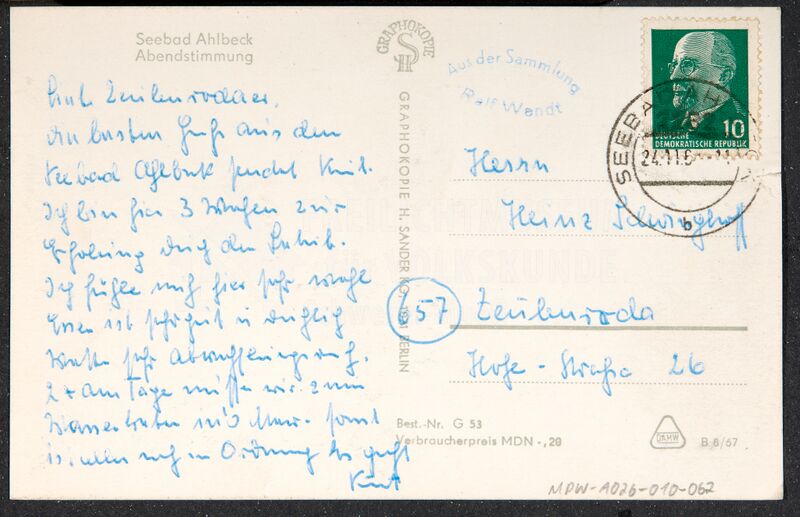 Seebad Ahlbeck
Abendstimmung
Zeulenrodaer,
aus dem
Seebad Ahlbeck sendet Kurt.
Ich bin hier 3 Wochen zur
Erholung durch den Betrieb.
Ich fühle mich hier sehr wohl
Essen ist sehr gut u reichlich
Wetter sehr abwechslungsreich.
2 x am Tage müssen wir zum
sonst
ist alles noch in Ordnung Es grüßt
Kurt
GRAPHOKOPIE
SH
GRAPHOKOPIE H. SANDER KG BERLIN
Aus der Sammlung
Ralf Wendt
10
DEUTSCHE
DEMOKRATISCHE REPUBLIK
SEEBA
24.11.6
b
Herrn
Heinz Schwinghoff
VOLKSKUNDE
657
Zeulenroda
Hohe-Straße 26
Best.-Nr. G 53
Verbraucherpreis MDN -,20
DAMW
B 6/67
MPW-A026-010-062